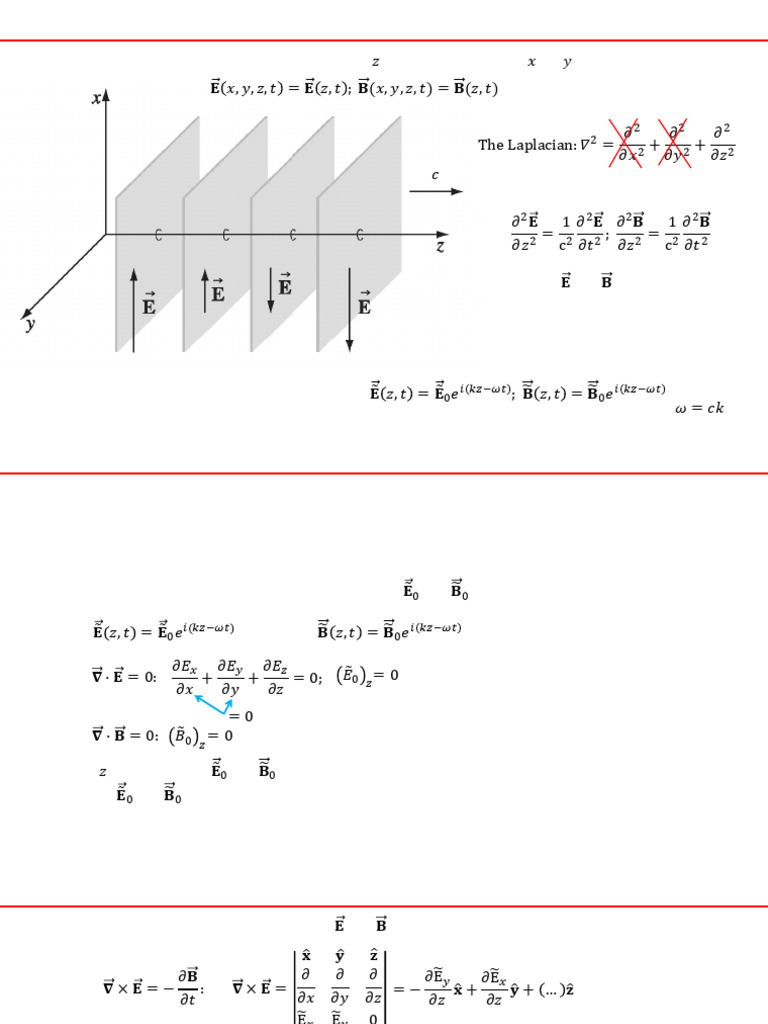 z x y
E⃗(x, y, z, t) = E⃗(z, t); B⃗(x, y, z, t) = B⃗(z, t)
x
The Laplacian: ∇² = ∂²/∂x² + ∂²/∂y² + ∂²/∂z²
c
C C C C
z
∂²E⃗/∂z² = 1/c² ∂²E⃗/∂t²; ∂²B⃗/∂z² = 1/c² ∂²B⃗/∂t²
E⃗ B⃗
E⃗ E⃗ E⃗ E⃗
y
Ẽ⃗(z, t) = Ẽ⃗₀e^{i(kz−ωt)}; B̃⃗(z, t) = B̃⃗₀e^{i(kz−ωt)}
ω = ck
Ẽ⃗₀ B̃⃗₀
Ẽ⃗(z, t) = Ẽ⃗₀e^{i(kz−ωt)} B̃⃗(z, t) = B̃⃗₀e^{i(kz−ωt)}
∇⃗ · E⃗ = 0: ∂Eₓ/∂x + ∂E_y/∂y + ∂E_z/∂z = 0; (Ẽ₀)_z = 0
= 0
∇⃗ · B⃗ = 0: (B̃₀)_z = 0
z Ẽ⃗₀ B̃⃗₀
Ẽ⃗₀ B̃⃗₀
E⃗ B⃗
∇⃗ × E⃗ = −∂B⃗/∂t: ∇⃗ × E⃗ = |x̂ ŷ ẑ; ∂/∂x ∂/∂y ∂/∂z; Ẽₓ Ẽ_y 0| = −∂Ẽ_y/∂z x̂ + ∂Ẽₓ/∂z ŷ + (…)ẑ